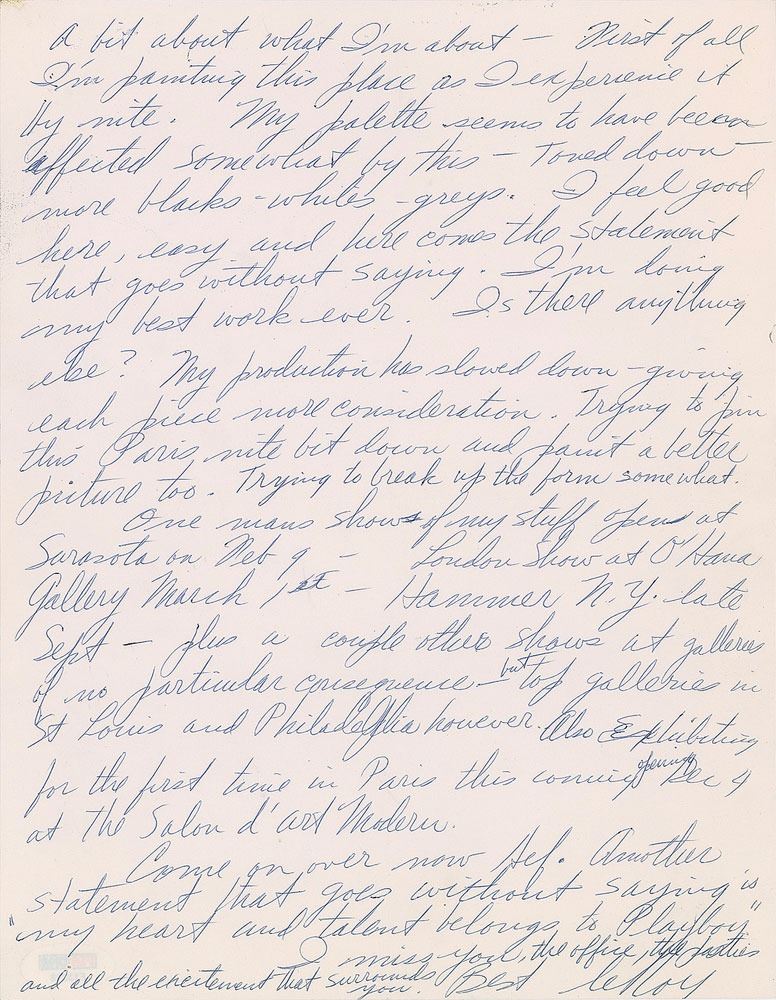 A bit about what I'm about — First of all
I'm painting this place as I experience it
by nite. My palette seems to have been
affected somewhat by this — Toned down —
more blacks - whites - greys. I feel good
here, easy and here comes the statement
that goes without saying. I'm doing
my best work ever. Is there anything
else? My production has slowed down - giving
each piece more consideration. Trying to pin
this Paris nite bit down and paint a better
picture too. Trying to break up the form somewhat.
One mans shows of my stuff opens at
Sarasota on Feb 9 — London Show at O'Hana
Gallery March 1st — Hammer N.Y. late
Sept — plus a couple other shows at galleries
of no particular consequence - but top galleries in
St Louis and Philadelphia however. Also Exhibiting
for the first time in Paris this coming opening Dec 4
at the Salon d'art Modern.
Come on over now Hef. Another
statement that goes without saying is
"my heart and talent belongs to Playboy"
I miss you, the office, the parties
and all the excitement that surrounds
you. Best LeRoy